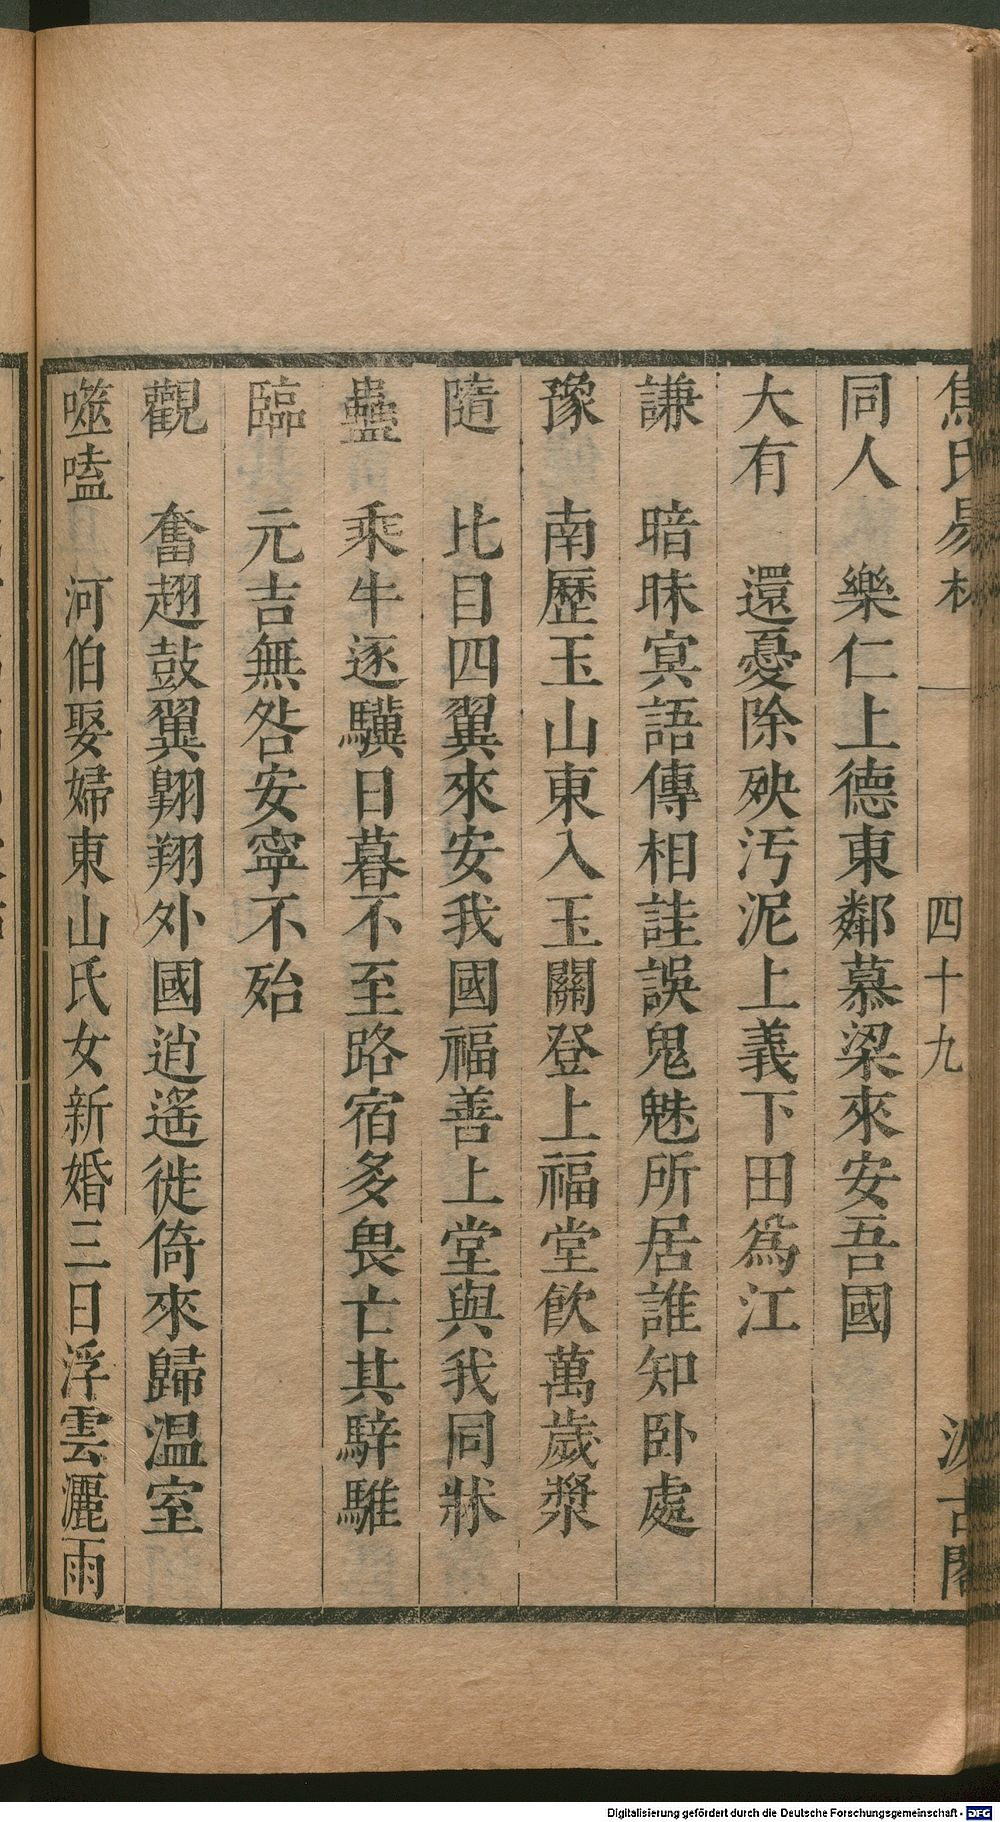 焦氏易林 一 四十九 汲古閣
同人 樂仁上德東鄰慕梁來安吾國
大有 還憂除殃汚泥上義下田爲江
謙 暗昧冥語傳相詿誤鬼魅所居誰知卧處
豫 南歷玉山東入玉關登上福堂飲萬歲漿
隨 比目四翼來安我國福善上堂與我同牀
蠱 乘牛逐驥日暮不至路宿多畏亡其騂騅
臨 元吉無咎安寧不殆
觀 奮翅鼓翼翺翔外國逍遙徙倚來歸温室
噬嗑 河伯娶婦東山氏女新婚三日浮雲灑雨
Digitalisierung gefördert durch die Deutsche Forschungsgemeinschaft - DFG